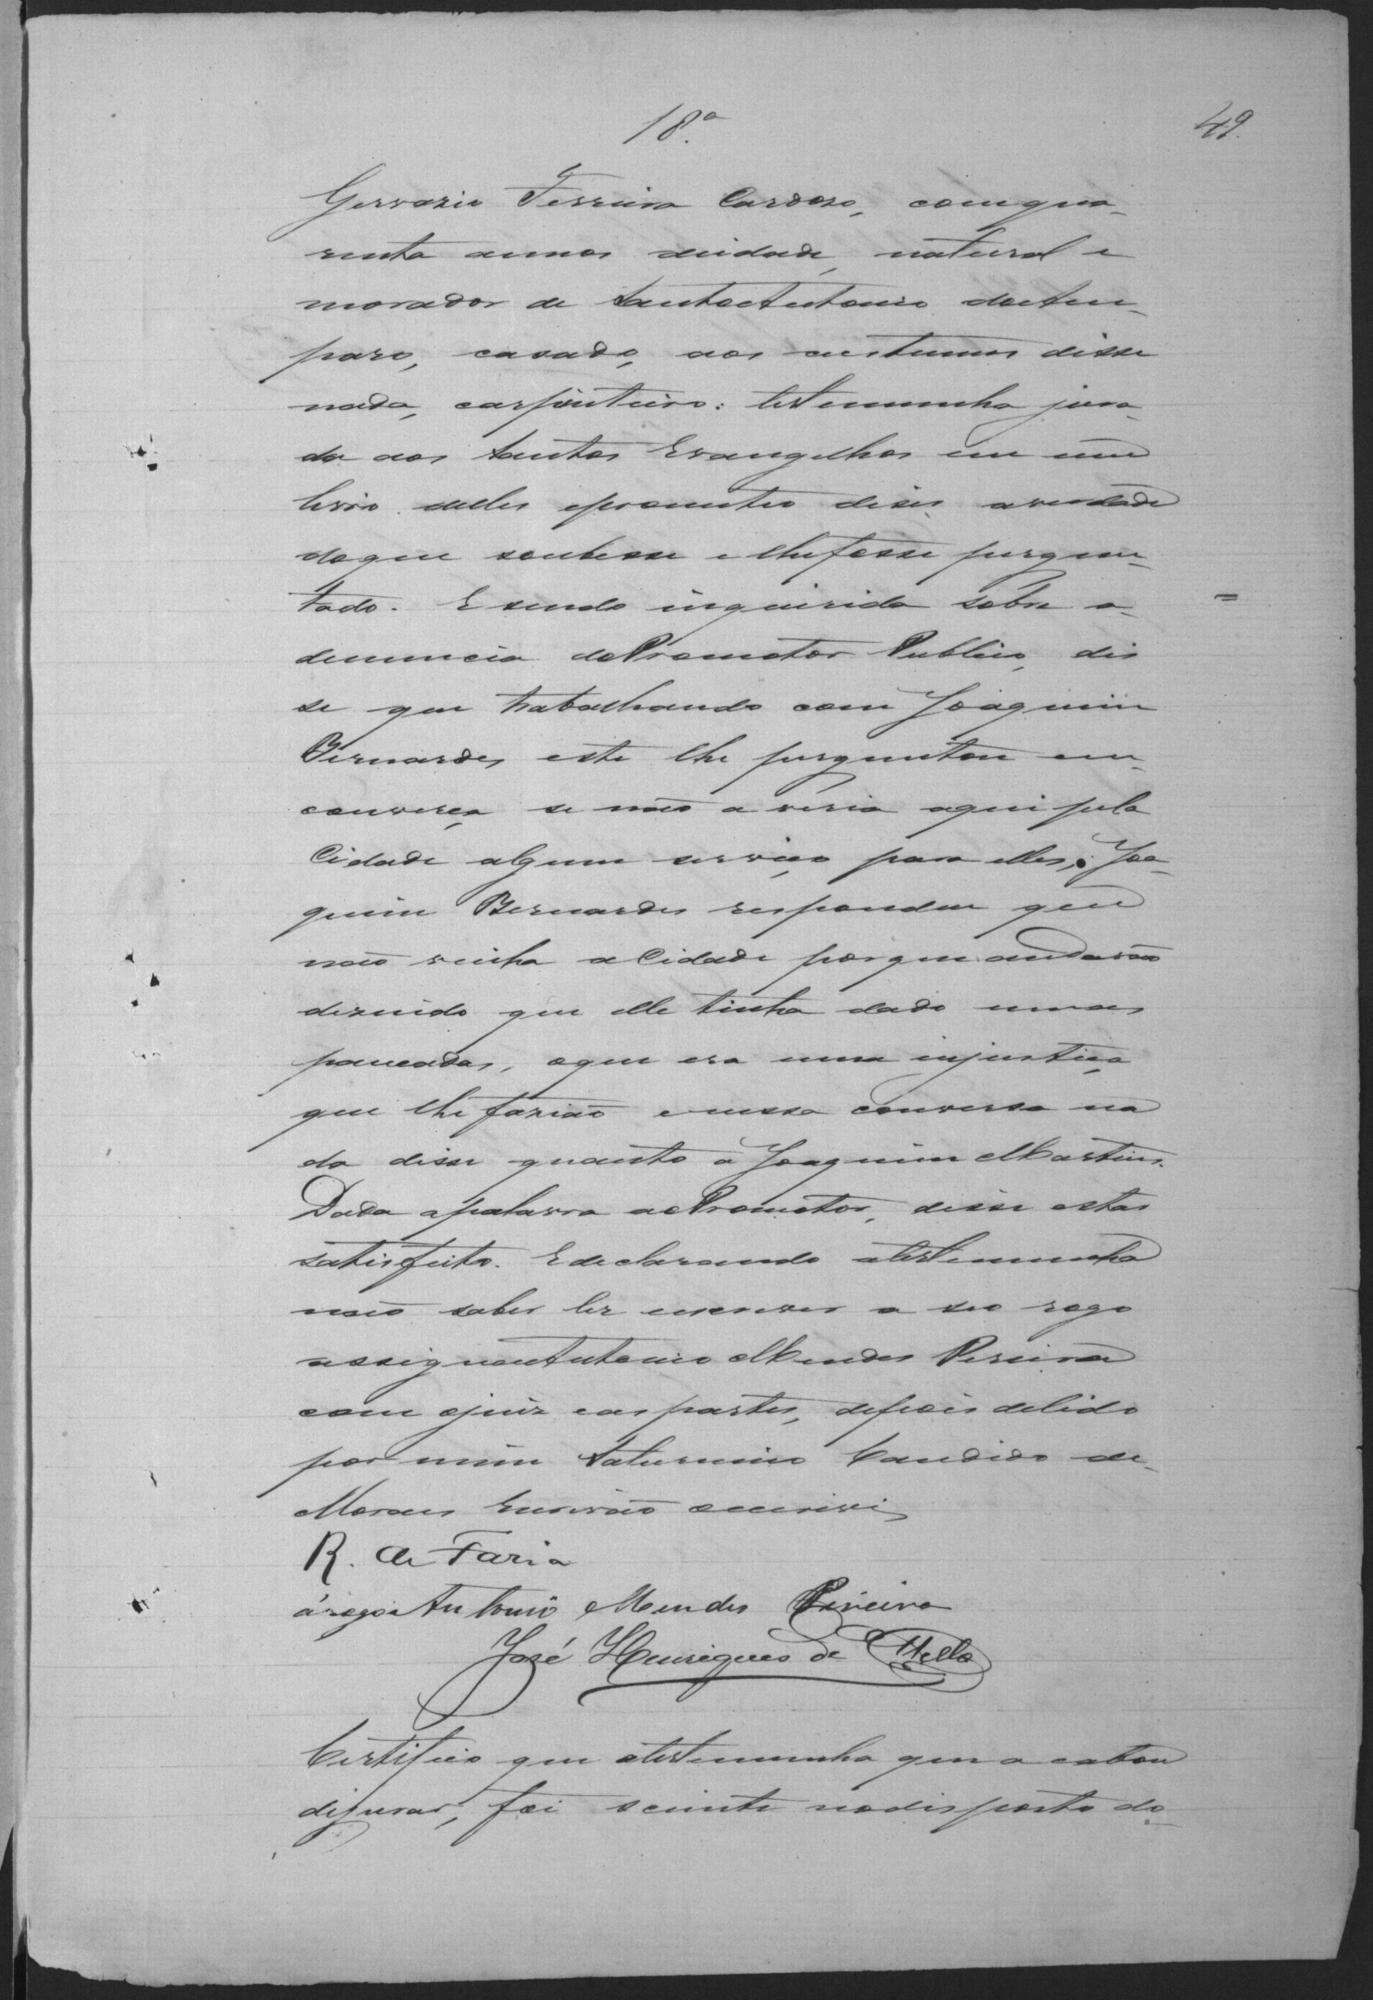 18ª
49.
Gervazio Ferreira Cardozo, com qua-
renta annos deidade, natural e
morador de Santo Antonio do Am-
paro, casado, aos custumes disse
nada, carpinteiro: testemunha jura-
da aos Santos Evangelhos em um
livro delles eprometeo diser averdade
doque soubesse e lhefosse pergun-
tado. E sendo inquirida sobre a
denuncia doPromotor Publico, dis
se que trabalhando com Joaquim
Bernardes este lhe perguntou em
converça se não a veria aqui pela
Cidade algum serviço para elles, Joa-
quim Bernardes respondeu que
não vinha aCidade porque andavão
dizendo que elle tinha dado umas
pancadas, oque era uma injustiça
que lhe fazião e nessa conversa na
da disse quanto a Joaquim Martins.
Dada apalavra aoPromotor, disse estar
satisfeito. Edeclarando atestemunha
não saber ler escrever a seo rogo
assigna Antonio Mendes Pereira
com ojuiz eas partes, depois delido
por mim Saturnino Candido de
Moraes Escrivão oescrivi
R. de Faria
árogo Antonio Mendes Pireira
José Henriques de Mello
Certifico que atestemunha que a cabou
dejurar, foi sciente nodisposto do